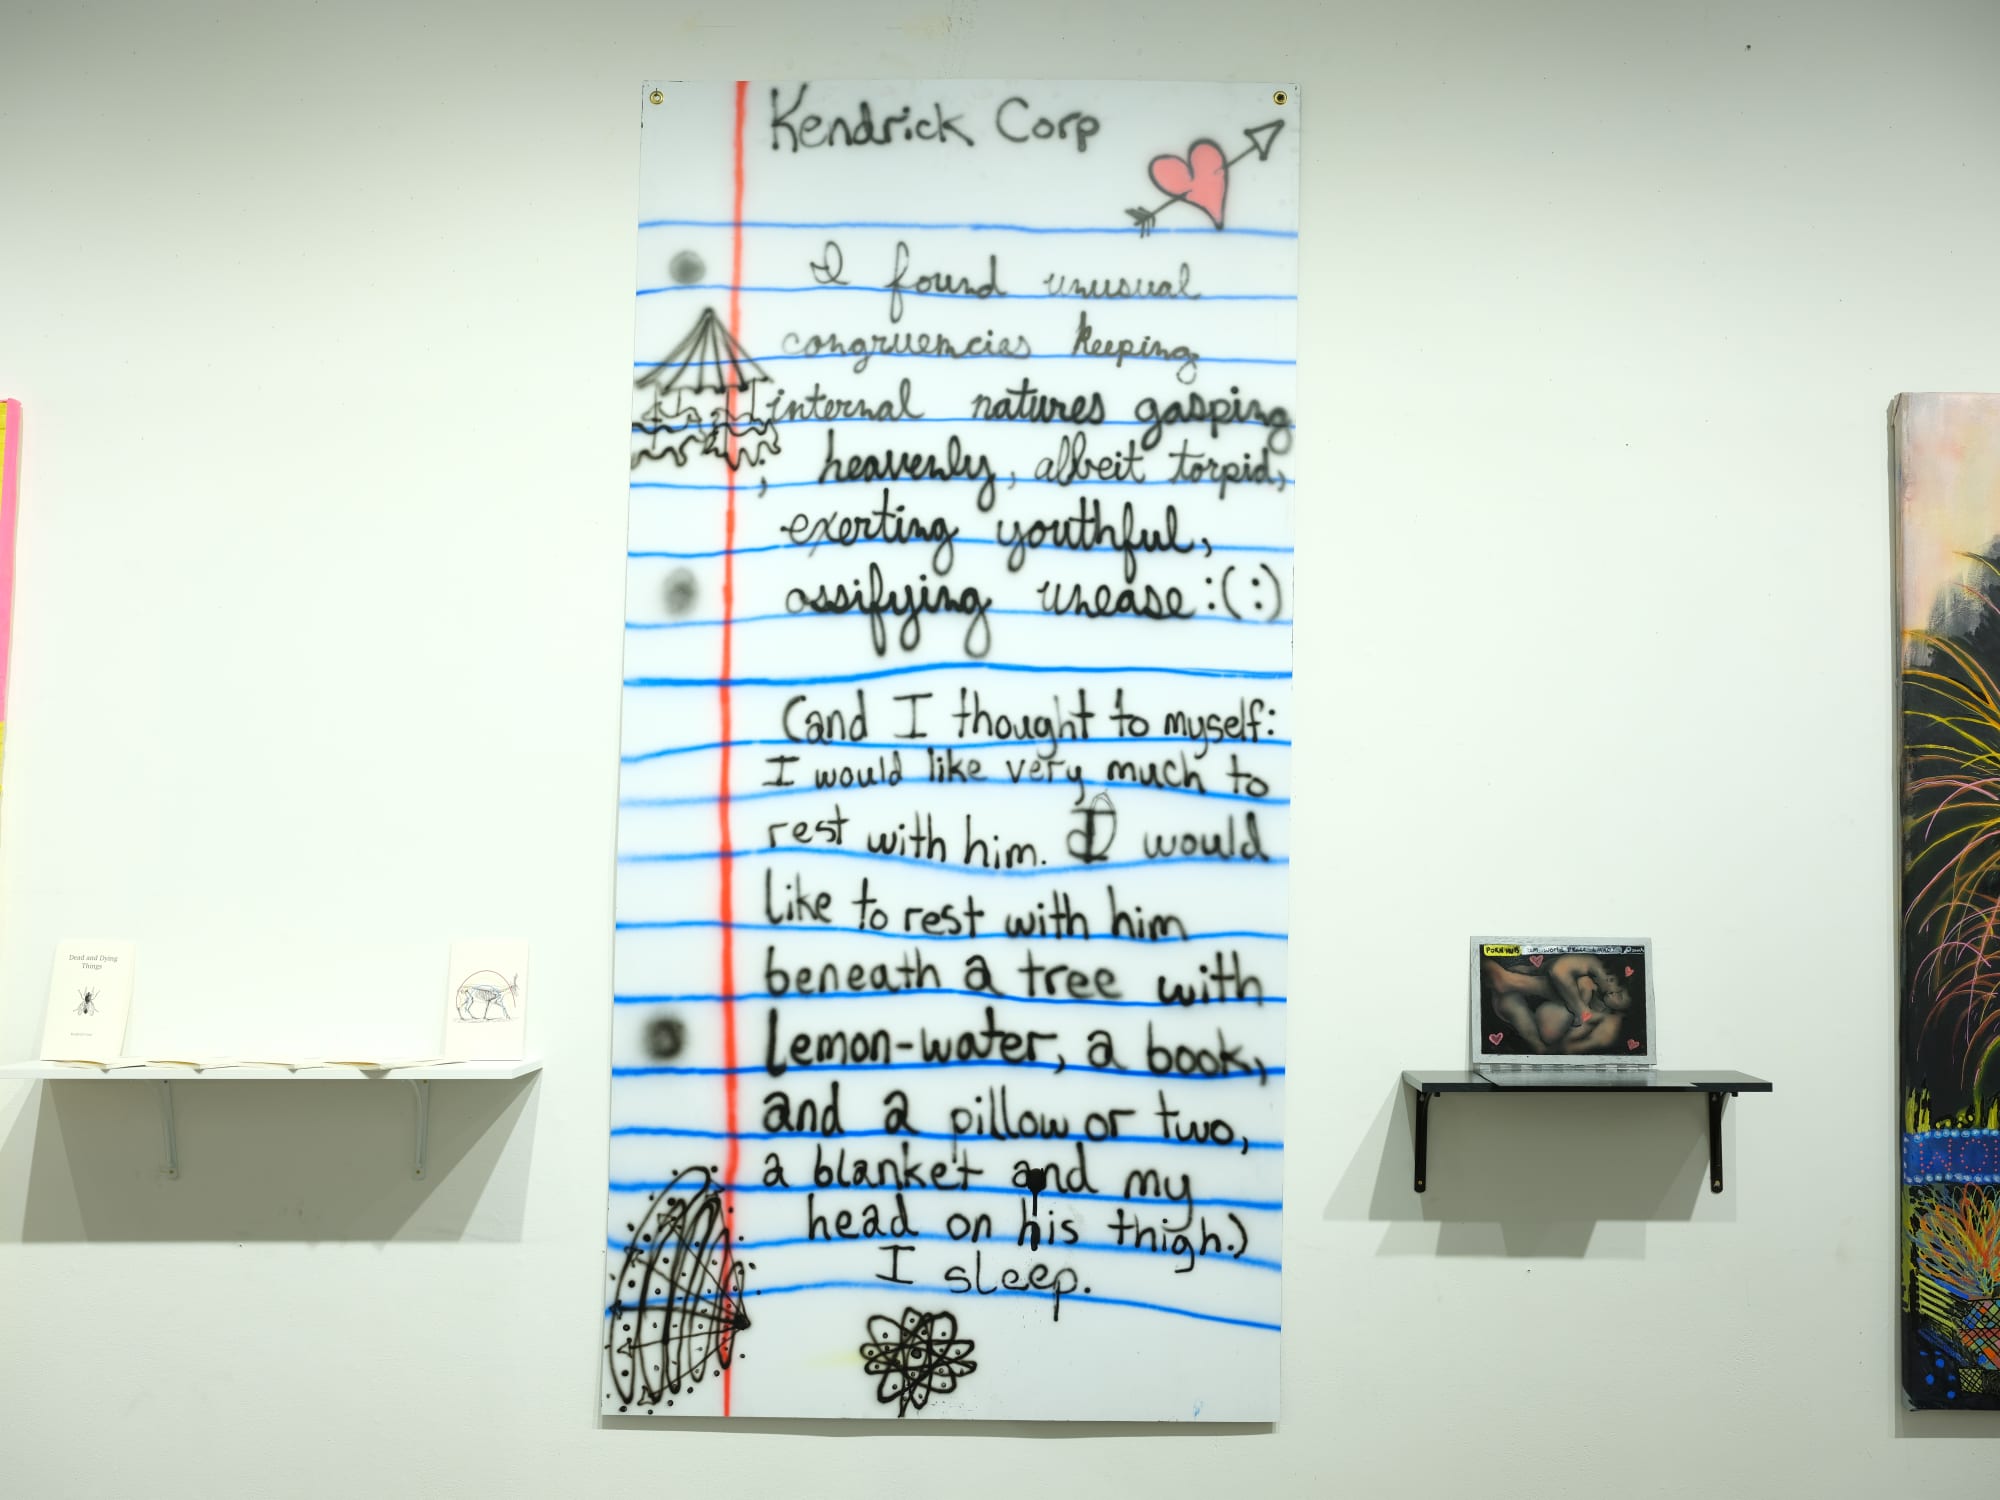 Kendrick Corp
I found unusual
congruencies keeping
internal natures gasping
; heavenly, albeit torpid,
exerting youthful,
ossifying unease :(:)
(and I thought to myself:
I would like very much to
rest with him. I would
like to rest with him
beneath a tree with
Lemon-water, a book,
and a pillow or two,
a blanket and my
head on his thigh.)
I sleep.
Dead and Dying
Things
PORN HUB